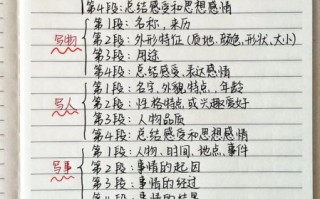 第4段:总结感受和思想感情
写物
第1段:名称,来历
第2段:外形特征(质地、颜色,形状、大小)
第3段:用途
第4段:总结感受、表达感情
写人
第1段:名字,外貌,特点,年龄
第2段:性格特点,或兴趣爱好
第3段:人物品质
第4段:总结感受和思想感情
写事
第1段:人物、时间、地点、事件
第2段:事情的起因
第3段:事情的经过
第4段:事情的结果